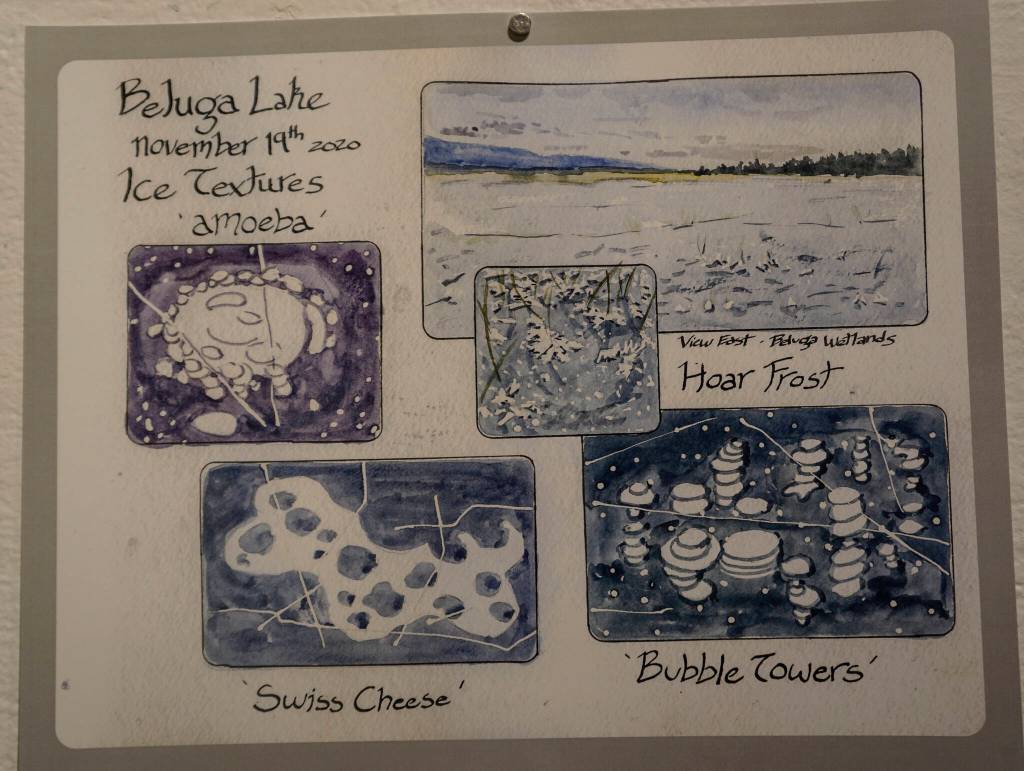 Beluga Lake
november 19th 2020
Ice Textures
'amoeba'
View East - Beluga Wetlands
Hoar Frost
'Swiss Cheese'
'Bubble Towers'